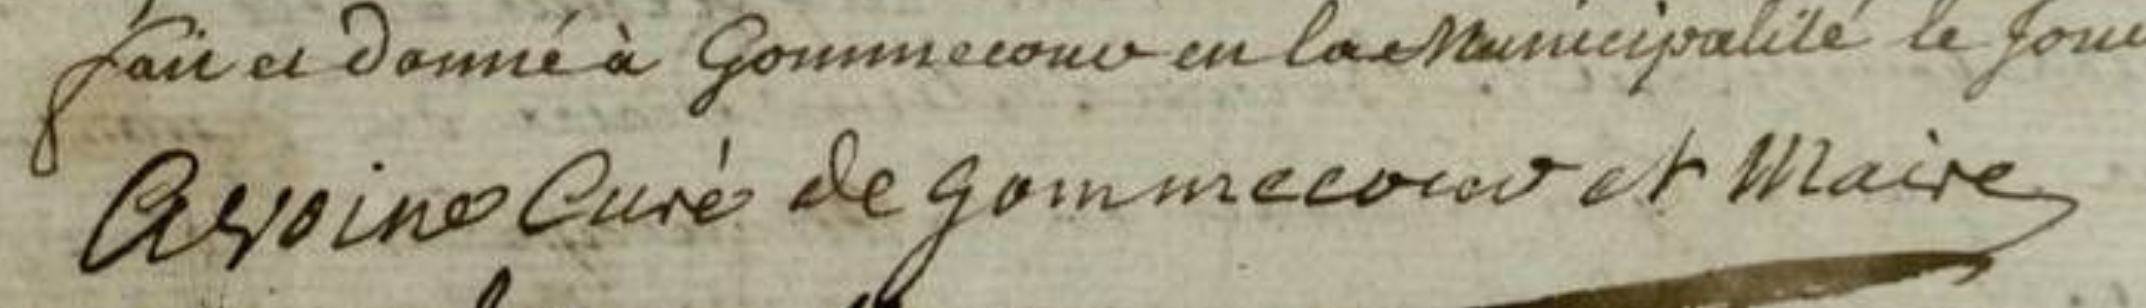 fait et donné à Gommecour en la Municipalité le Jour
Curé de gommecour et Maire